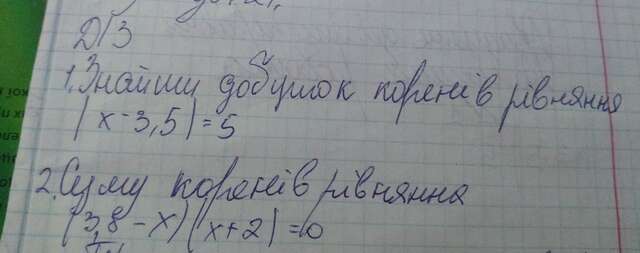 Д/З
1. Знайти добуток коренів рівняння
|x-3,5|=5
2. Суму коренів рівняння
(3,8-x)(x+2)=0